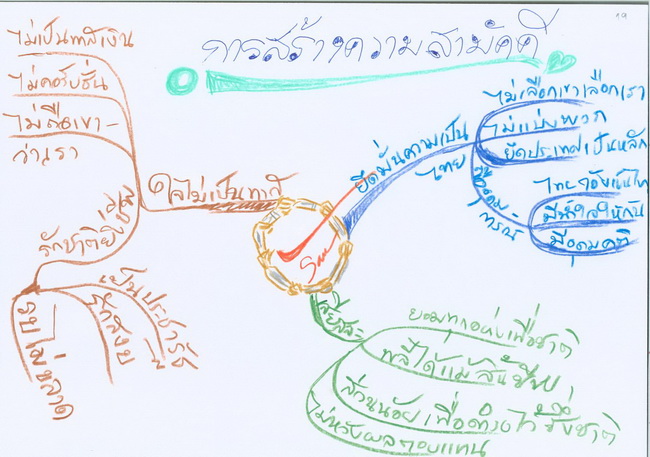 การสร้างความสามัคคี
ไม่เป็นทาสเงิน
ไม่คอรัปชั่น
ไม่ถือเขา-
ว่าเรา
ใจไม่เป็นทาส
รักชาติยิ่งชีพ
เป็นประชาธิ
รักสงบ
ไม่ขลาด
ยึดมั่นความเป็น
ไทย
ไม่เลือกเขาเลือกเรา
ไม่แบ่งพวก
ยึดประเทศเป็นหลัก
อุดมการณ์
ไทยต้องเป็นไทย
มีน้ำใจให้กัน
มีอุดมคติ
เสียสละ
ยอมทุกอย่างเพื่อชาติ
พลีได้แม้สิ้นชีพ
ส่วนน้อยเพื่อดำรงไว้ซึ่งชาติ
ไม่หวังผลตอบแทน